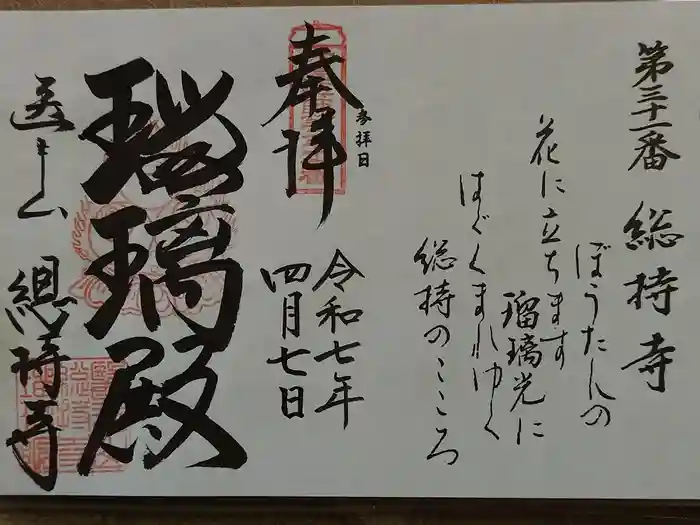 第三十一番 総持寺
ぼうたんの
花に立ちます
瑠璃光に
はぐくまれゆく
総持のこころ
奉拝
参拝日
令和七年
四月七日
瑠璃殿
總持寺